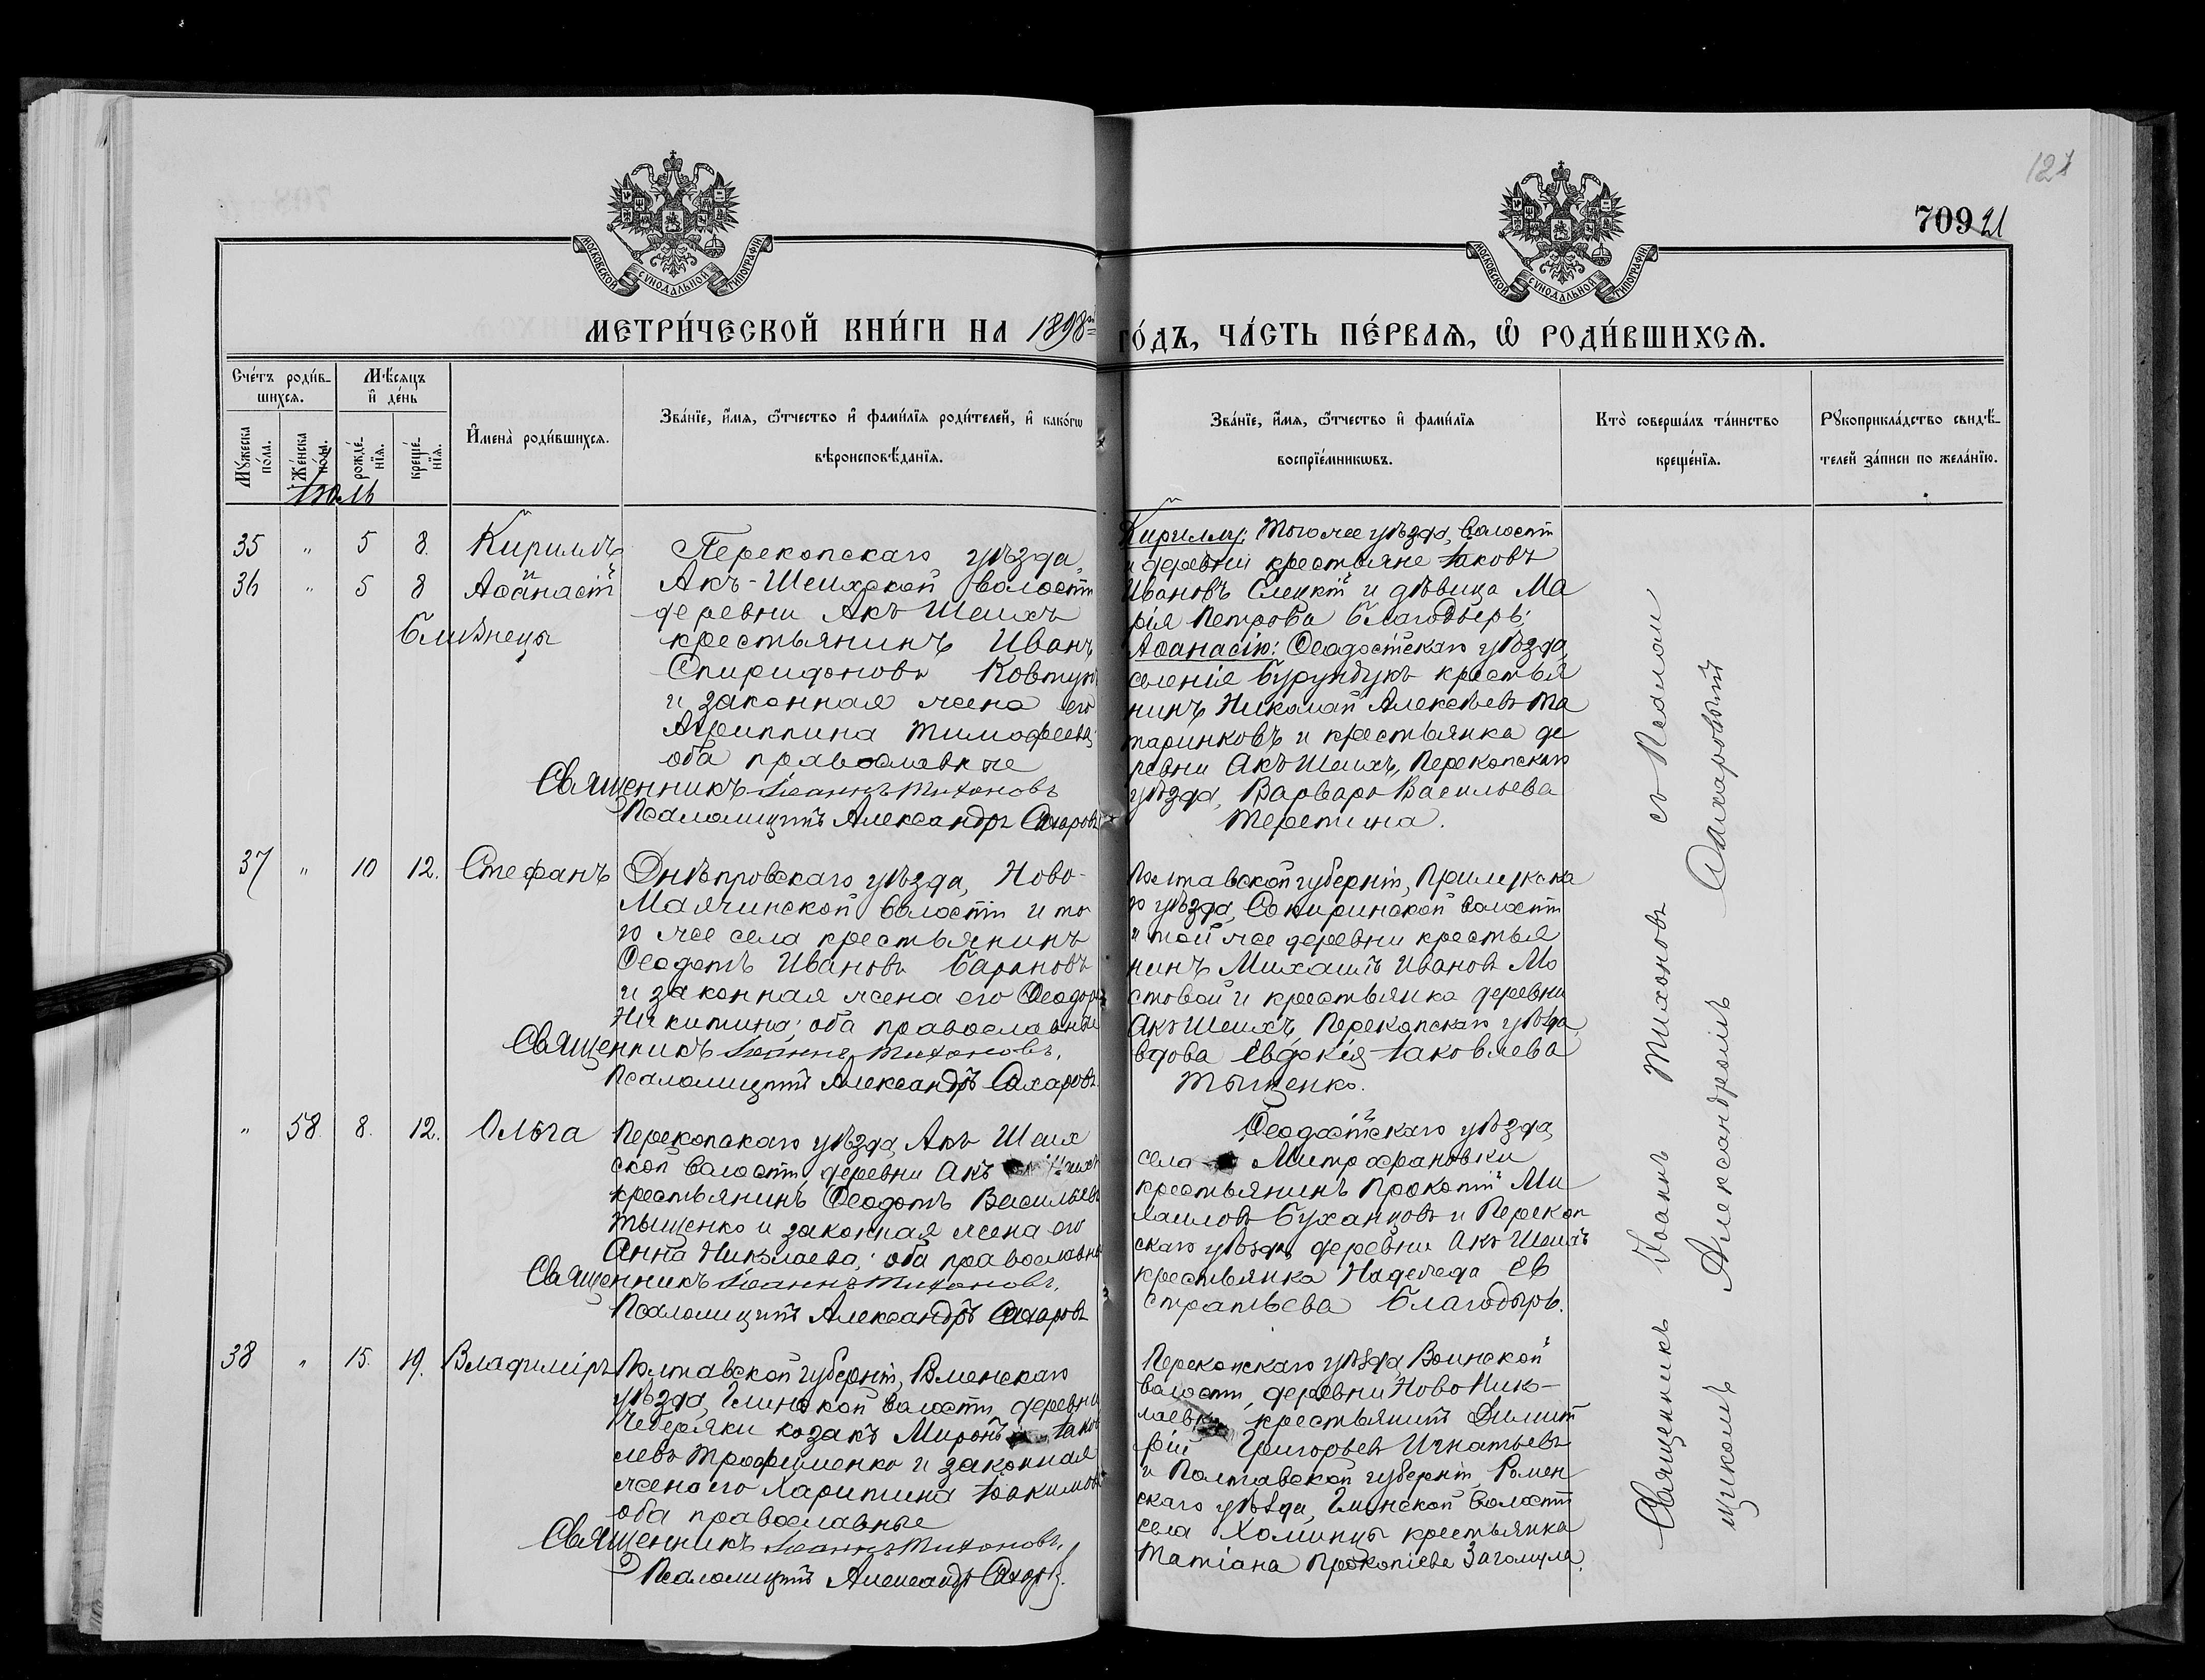 127
709 21
МОСКОВСКОЙ СѴНОДАЛЬНОЙ ТИПОГРАФІИ
МОСКОВСКОЙ СѴНОДАЛЬНОЙ ТИПОГРАФІИ
МЕТРИ́ЧЕСКОЙ КНИ́ГИ НА 1898й ГО́ДЪ, ЧА́СТЬ ПЕ́РВАѦ, Ѡ҆ РОДИ́ВШИХСѦ.
Сче́тъ роди́вшихсѧ.
Мѣ́сѧцъ и҆ де́нь
Мꙋ́жеска по́ла.
Же́нска по́ла.
рожде́нїѧ.
креще́нїѧ.
И҆мена̀ роди́вшихсѧ.
Зва́нїе, и҆́мѧ, ѻ҆́тчество и҆ фами́лїѧ роди́телей, и҆ како́гѡ
вѣроисповѣ́данїѧ.
Зва́нїе, и҆́мѧ, ѻ҆́тчество и҆ фами́лїѧ
воспрїе́мникѡвъ.
Кто̀ соверша́лъ та́инство
креще́нїѧ.
Рꙋкоприкла́дство свидѣ́-
телей за́писи по жела́нїю.
Іюль
35 " 5 8. Кириллъ
36 " 5 8 Аѳанасій
близнецы
Перекопскаго уѣзда,
Акъ-Шеихской волости
деревни Акъ Шеихъ
крестьянинъ Иванъ
Спиридоновъ Ковтунъ
и законная жена его
Агриппина Тимофеева;
оба православные
Священникъ Іоаннъ Тихоновъ
Псаломщикъ Александръ Сахаровъ
Кириллу: Того же уѣзда, волости
и деревни крестьяне Іаковъ
Ивановъ Слецкій и дѣвица Ма
рія Петрова Благодыръ;
Аѳанасію: Ѳеодосійскаго уѣзда,
селенія Бурундукъ крестья
нинъ Николай Алексѣевъ Та
таринковъ и крестьянка де
ревни Акъ Шеихъ, Перекопскаго
уѣзда, Варвара Васильева
Терепина.
37 " 10 12. Стефанъ
Днѣпровскаго уѣзда, Ново-
Маячинской волости и то
го же села крестьянинъ
Ѳеодотъ Ивановъ Барановъ
и законная жена его Ѳеодора
Никитина; оба православные
Священникъ Іоаннъ Тихоновъ.
Псаломщикъ Александръ Сахаровъ.
Полтавской губерніи, Прилукска
го уѣзда, Сокиринской волости
и той же деревни крестья
нинъ Михаилъ Ивановъ Мо
стовой и крестьянка деревни
Акъ Шеихъ, Перекопскаго уѣзда,
вдова Евдокія Іаковлева
Тыщенко.
" 58. 8. 12. Ольга
Перекопскаго уѣзда, Акъ Шеих
ской волости, деревни Акъ Шеихъ
крестьянинъ Ѳеодотъ Васильевъ
Тыщенко и законная жена его
Анна Николаева; оба православные
Священникъ Іоаннъ Тихоновъ.
Псаломщикъ Александръ Сахаровъ
Ѳеодосійскаго уѣзда,
села Митрофановки
крестьянинъ Прокопій Ми
хаиловъ Буханцовъ и Перекоп
скаго уѣзда, деревни Акъ Шеихъ
крестьянка Надежда Ев
стратьева Благодыръ.
38 " 15. 19. Владиміръ
Полтавской губерніи, Роменскаго
уѣзда, Глинской волости, деревни
Чеберяки козакъ Миронъ Іаков
левъ Трофименко и законная
жена его Харитина Іоакимова
оба православные
Священникъ Іоаннъ Тихоновъ.
Псаломщикъ Александръ Сахаровъ.
Перекопскаго уѣзда, Воинской
волости, деревни Ново Нико-
лаевки крестьянинъ Димит
рій Григорьевъ Игнатьевъ
и Полтавской губерніи, Ромен
скаго уѣзда, Глинской волости
села Хоминцы крестьянка
Татіана Прокопіева
Священникъ Іоаннъ Тихоновъ съ Псалом
щикомъ Александромъ Сахаровымъ